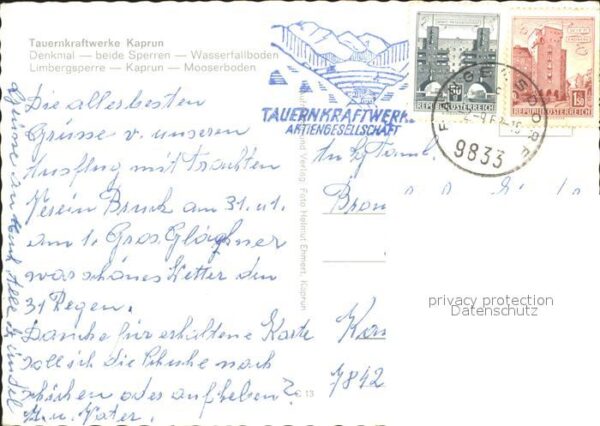 Tauernkraftwerke Kaprun
Denkmal — beide Sperren — Wasserfallboden
Limbergsperre — Kaprun — Mooserboden
TAUERNKRAFTWERKE
AKTIENGESELLSCHAFT
REPUBLIK ÖSTERREICH
REPUBLIK ÖSTERREICH
1.50
9833
Die allerbesten
Grüsse v. unseren
Ausflug mit Trachten
Verein Bruck am 31. u 1.
am 1. Gros. Glogner
war schönes Wetter den
31 Regen.
Danke für erhaltene Karte
soll ich die Schuhe nach
schicken oder aufheben?
M. u. Vater.
und Verlag: Foto Helmut Ehmert, Kaprun
An Familie
Kan
7842
privacy protection
Datenschutz